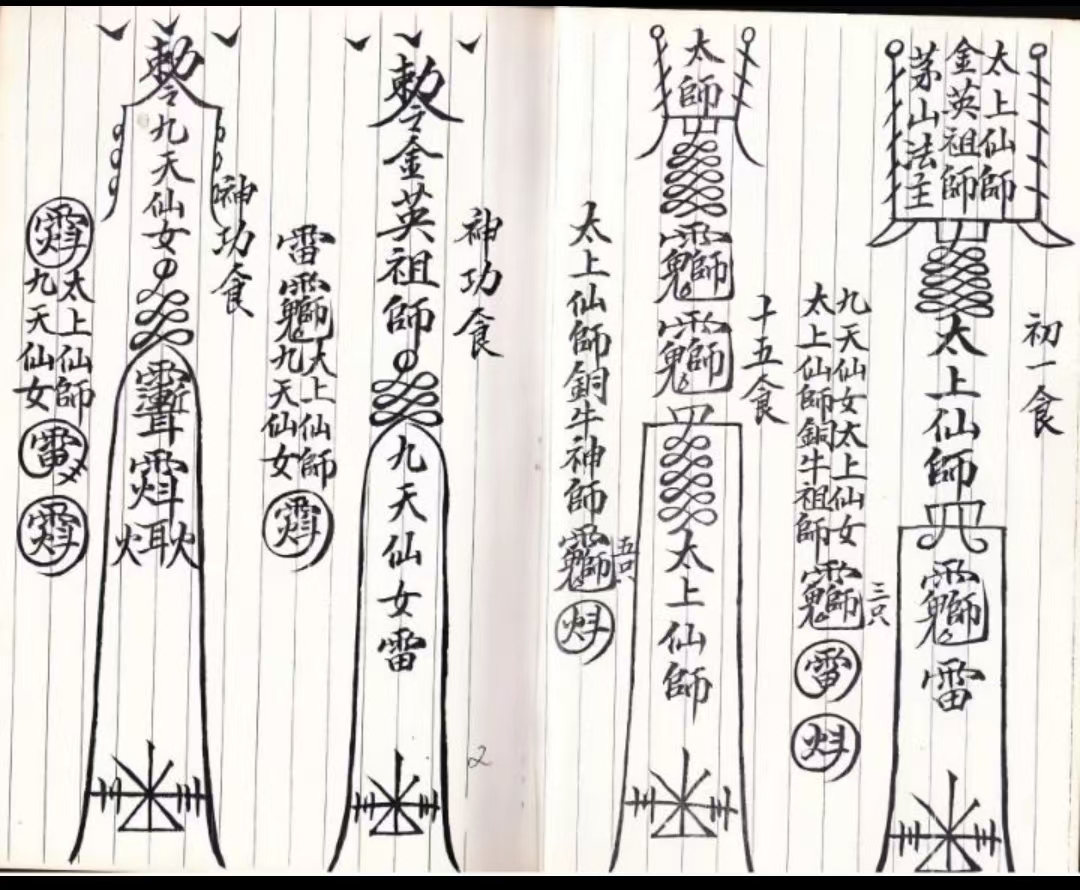 初一食
太上仙師
金英祖師
茅山法主
太上仙師
雷
九天仙女太上仙女
太上仙師銅牛祖師
三只
雷
十五食
太師
太上仙師
太上仙師銅牛神師
五只
神功食
2
敕令金英祖師
九天仙女雷
雷
太上仙師
九天仙女
神功食
勅令九天仙女
太上仙師
九天仙女
雷